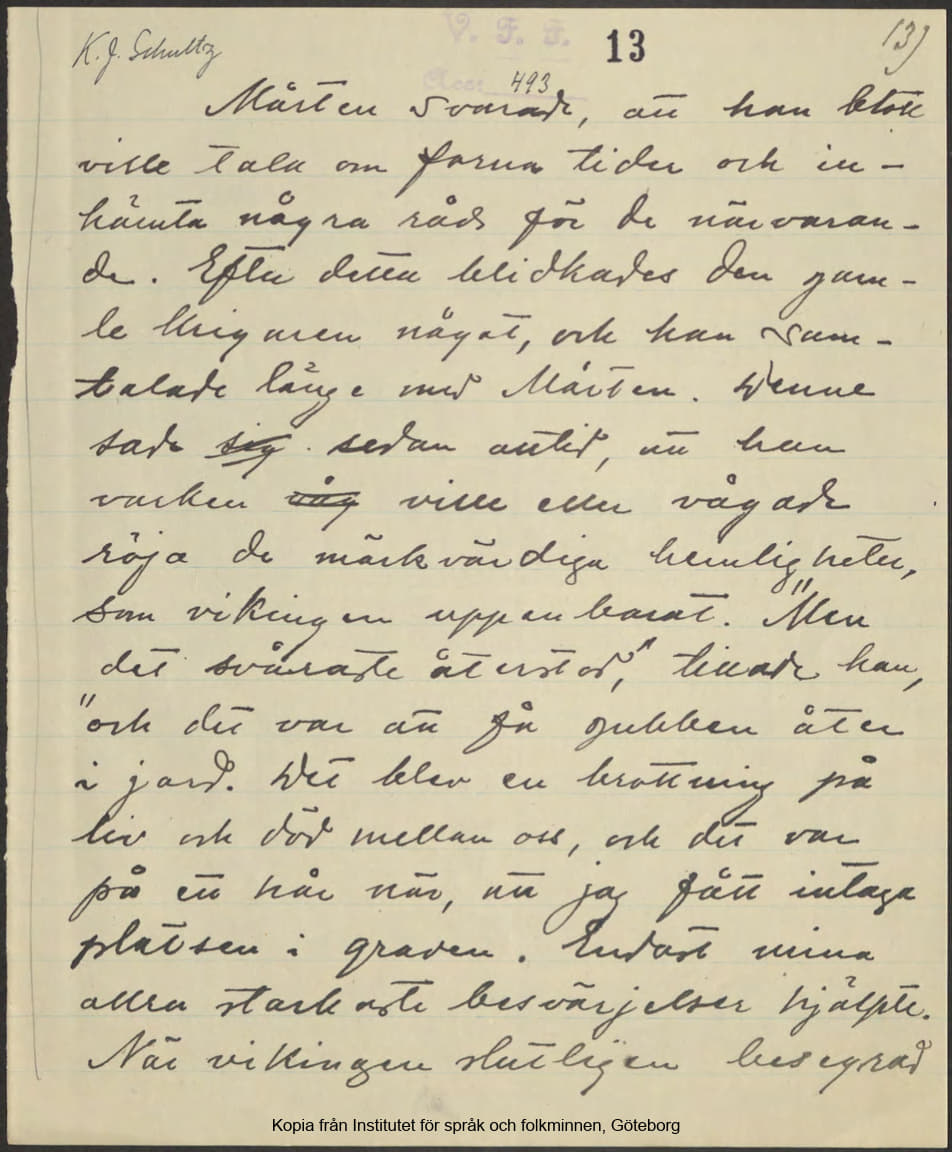 K. J. Schultz
V. F. F. 13 13)
Acc: 493
Mårten svarade, att han blott
ville tala om forna tider och in-
hämta några råds för de närvaran-
de. Efter detta blidkades den gam-
le krigaren något, och han sam-
talade länge med Mårten. Denne
sade sig sedan alltid, att han
varken våg ville eller vågade
röja de märkvärdiga hemligheter,
som vikingen uppenbarat. "Men
det svåraste återstod," tillade han,
"och det var att få gubben åter
i jord. Det blev en brottning på
liv och död mellan oss, och det var
på ett hår när, att jag fått intaga
platsen i graven. Endast mina
allra starkaste besvärjelser hjälpte.
När vikingen slutligen besegrad
Kopia från Institutet för språk och folkminnen, Göteborg